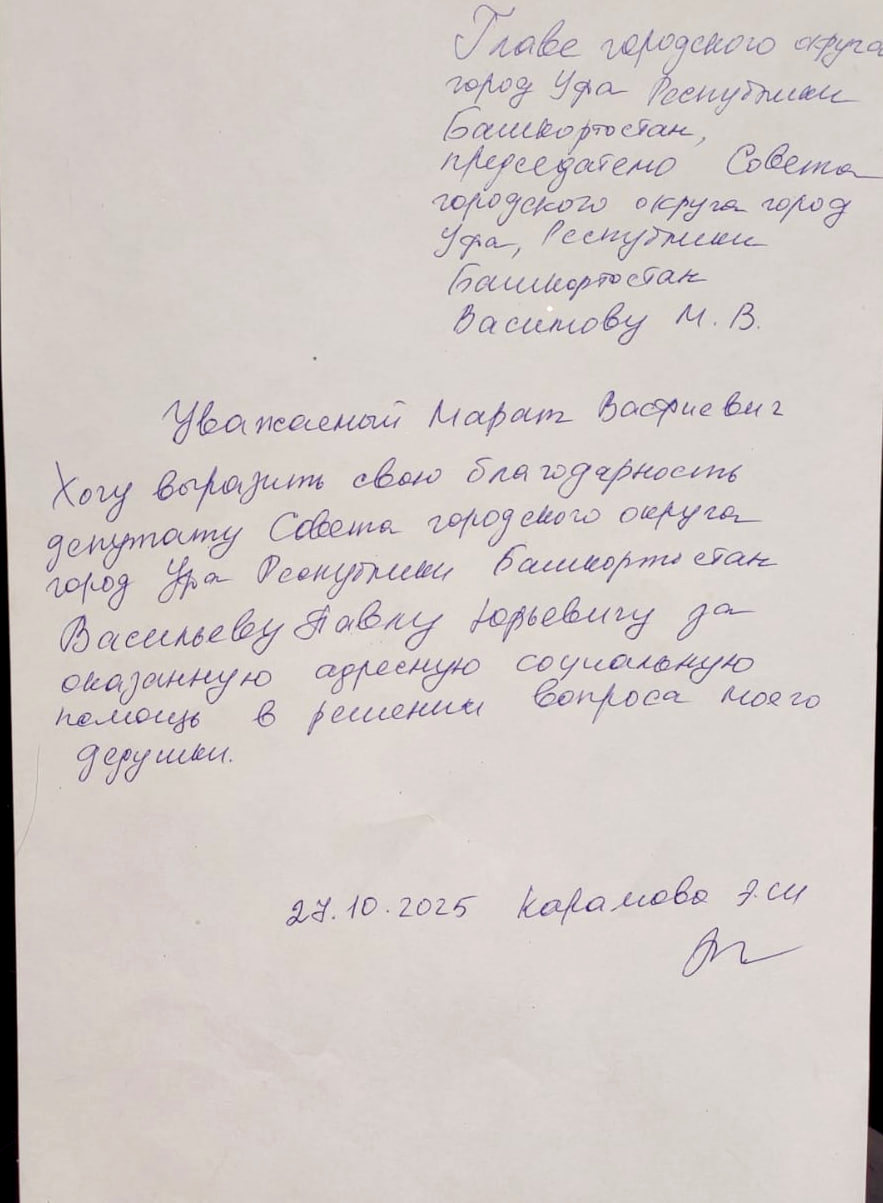 Главе городского округа
город Уфа Республики
Башкортостан,
председателю Совета
городского округа город
Уфа, Республики
Башкортостан
Васимову М. В.
Уважаемый Марат Васфиевич
Хочу выразить свою благодарность
депутату Совета городского округа
город Уфа Республики Башкортостан
Васильеву Павлу Юрьевичу за
оказанную адресную социальную
помощь в решении вопроса моего
дедушки.
27.10.2025 Карамова